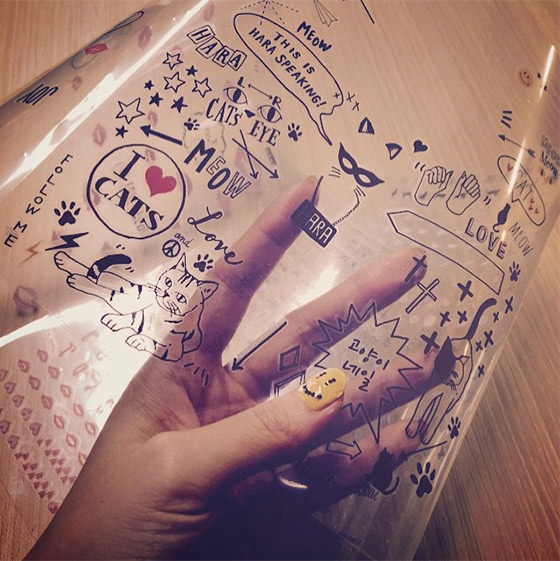 MEOW
THIS IS
HARA SPEAKING!
HARA
L
R
CATS
EYE
MEOW
I
CATS
FOLLOW ME
Love
and
HARA
LOVE
MEOW
고양이
네일